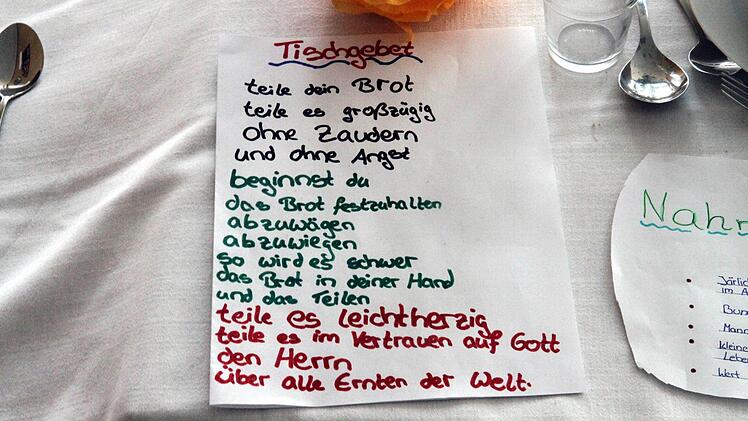 Tischgebet
teile dein Brot
teile es großzügig
ohne Zaudern
und ohne Angst
beginnst du
das Brot festzuhalten
abzuwägen
abzuwiegen
so wird es schwer
das Brot in deiner Hand
und das Teilen
teile es leichtherzig
teile es im Vertrauen auf Gott
den Herrn
über alle Ernten der Welt.
Nahr
Järlic
im A
Bun
Mann
Kleine
Leber
Wert